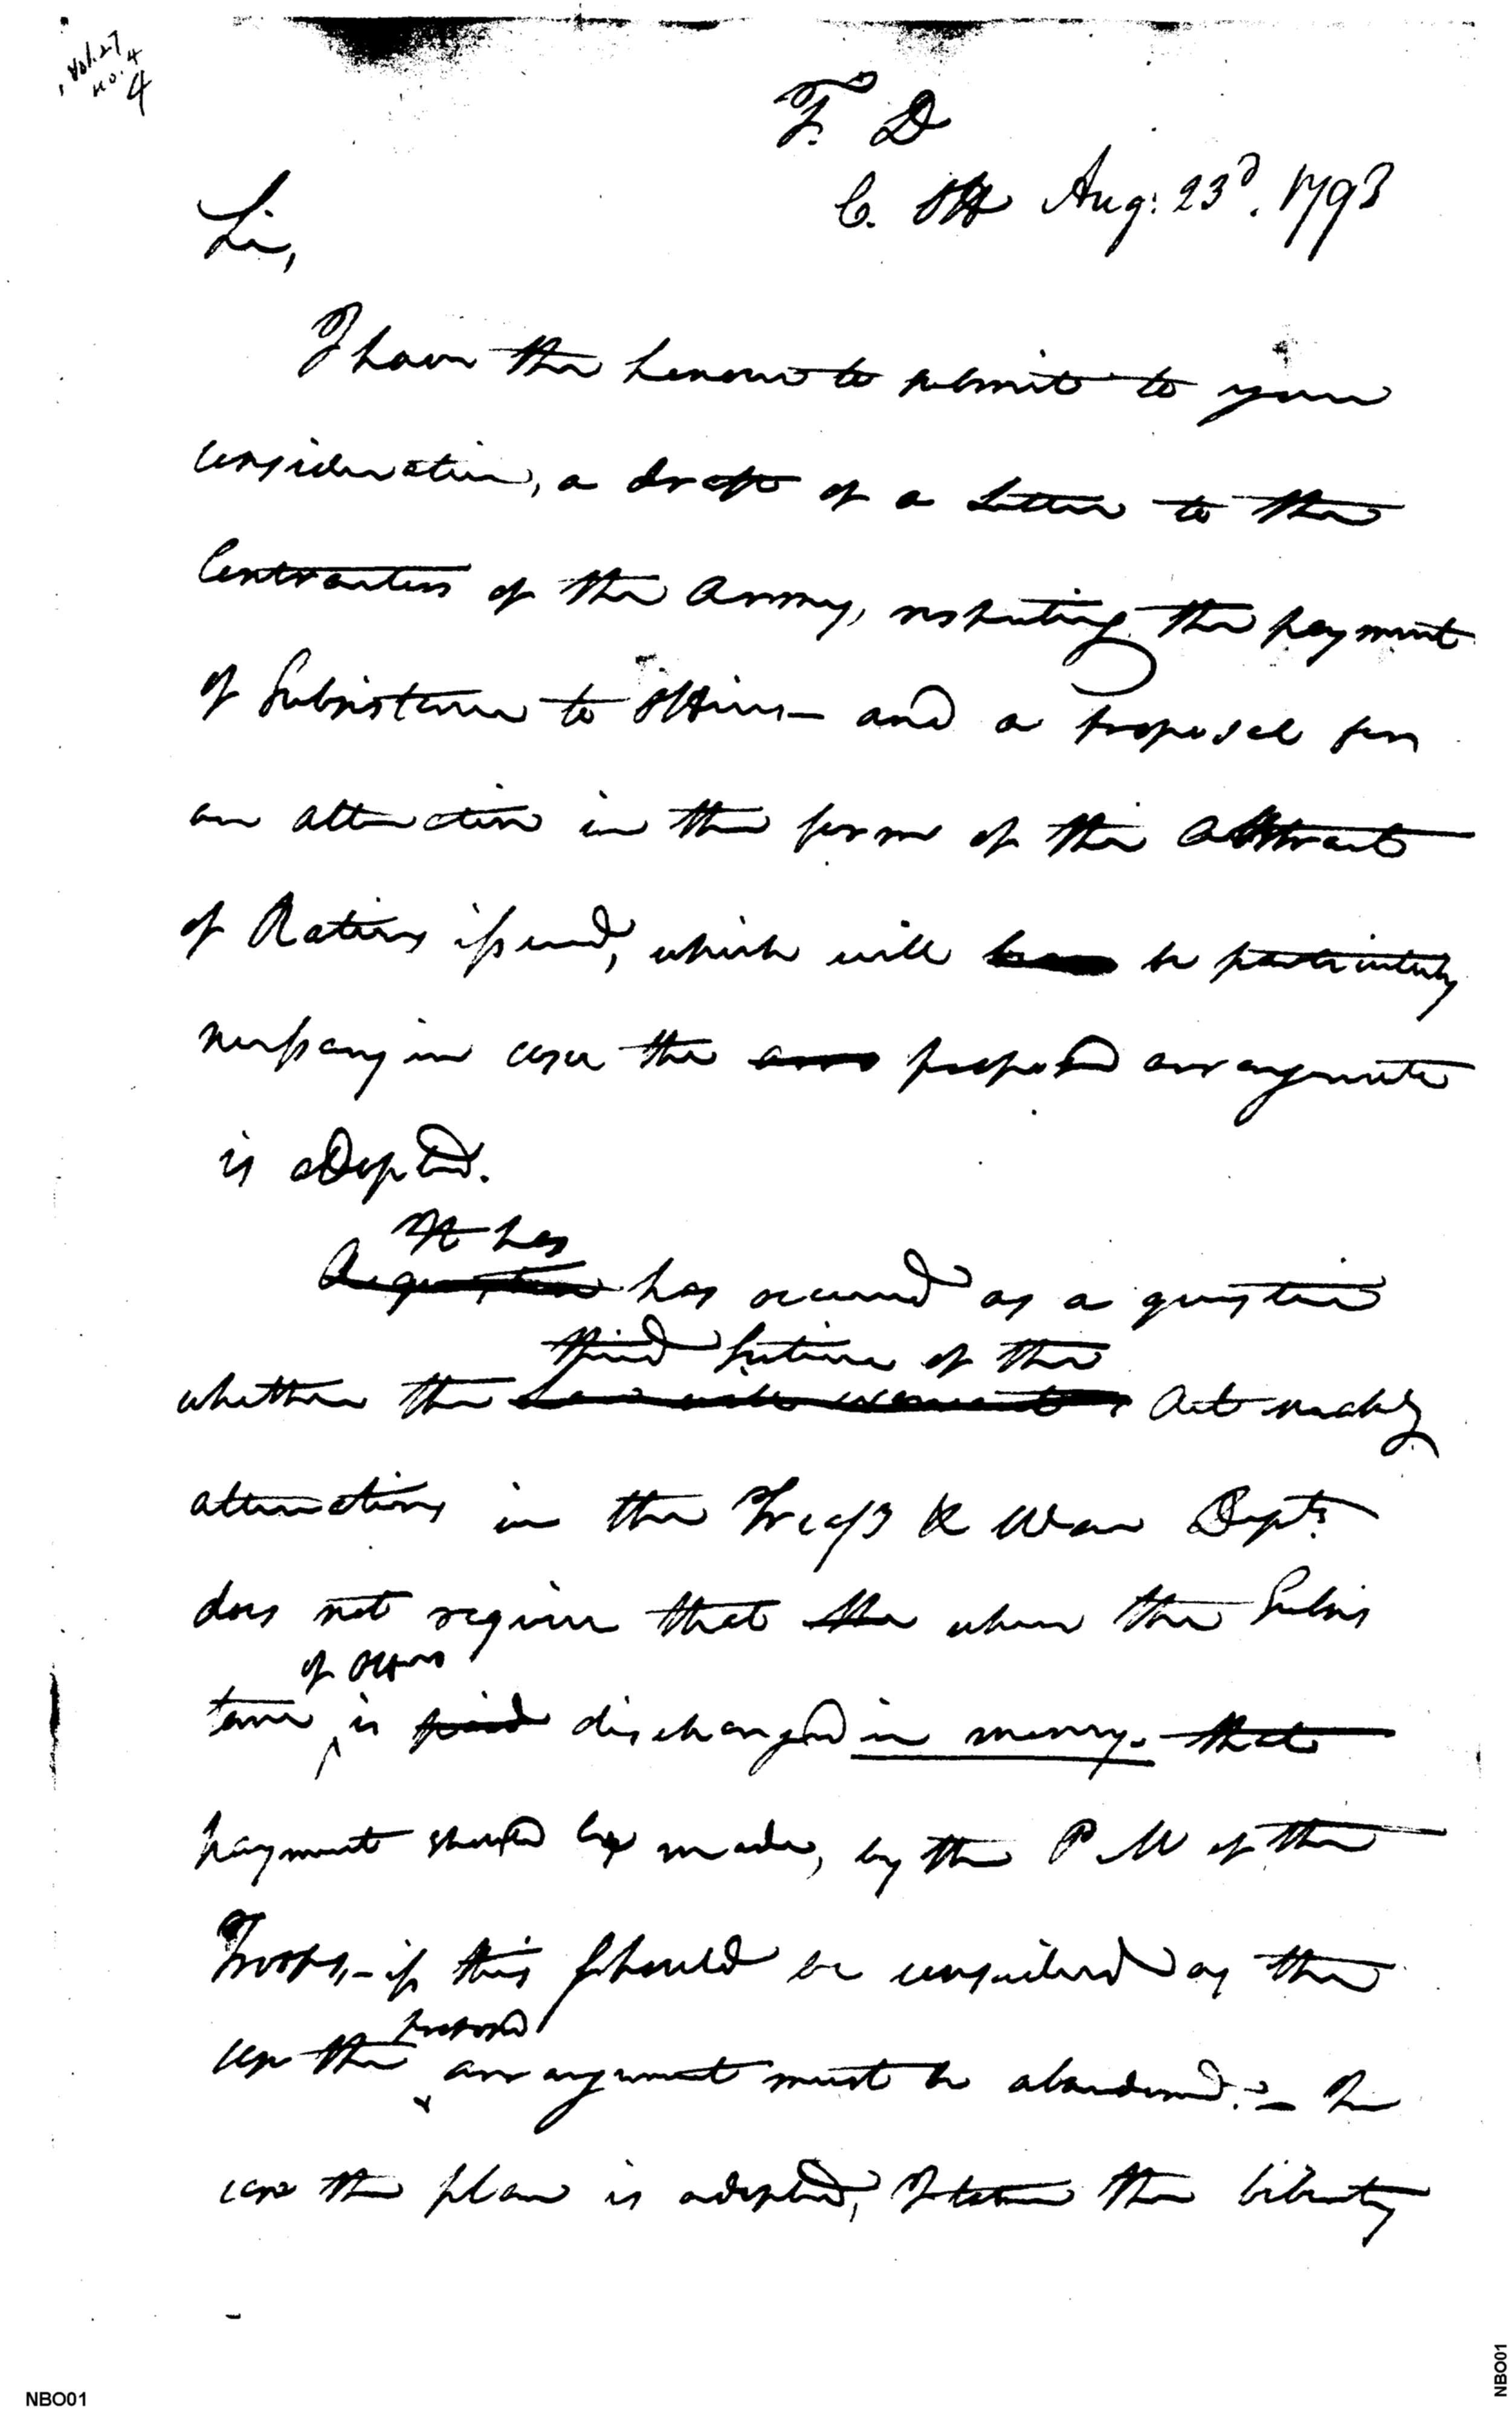 Vol. 27
No. 4
4
T. D
C. Off Aug: 23d. 1793
Sir,
I have the honour to submit to your
consideration, a draft of a Letter to the
Contractors of the Army, respecting the payment
of Subsistence to Officers— and a proposal for
an alteration in the form of the Abstract
of Rations issued, which will be particularly
necessary in case the proposed arrangement
is adopted.
It has
A question has occurred as a question
third section of the
whether the Act making
alterations in the Treasy & War Depts.
does not require that the when the Subsis
of Officers
tence is paid discharged in money. that
payment should be made, by the P M of the
Troops,—if this should be considered as the
proposed
case the arrangement must be abandoned.— In
case the plan is adopted, I take the liberty
NBO01
NBO01